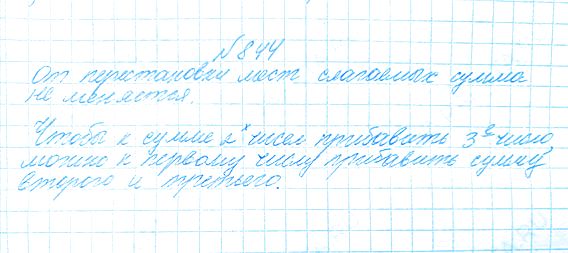 N 844
От перестановки мест слагаемых сумма
не меняется.
Чтобы к сумме 2х чисел прибавить 3е число,
можно к первому числу прибавить сумму
второго и третьего.